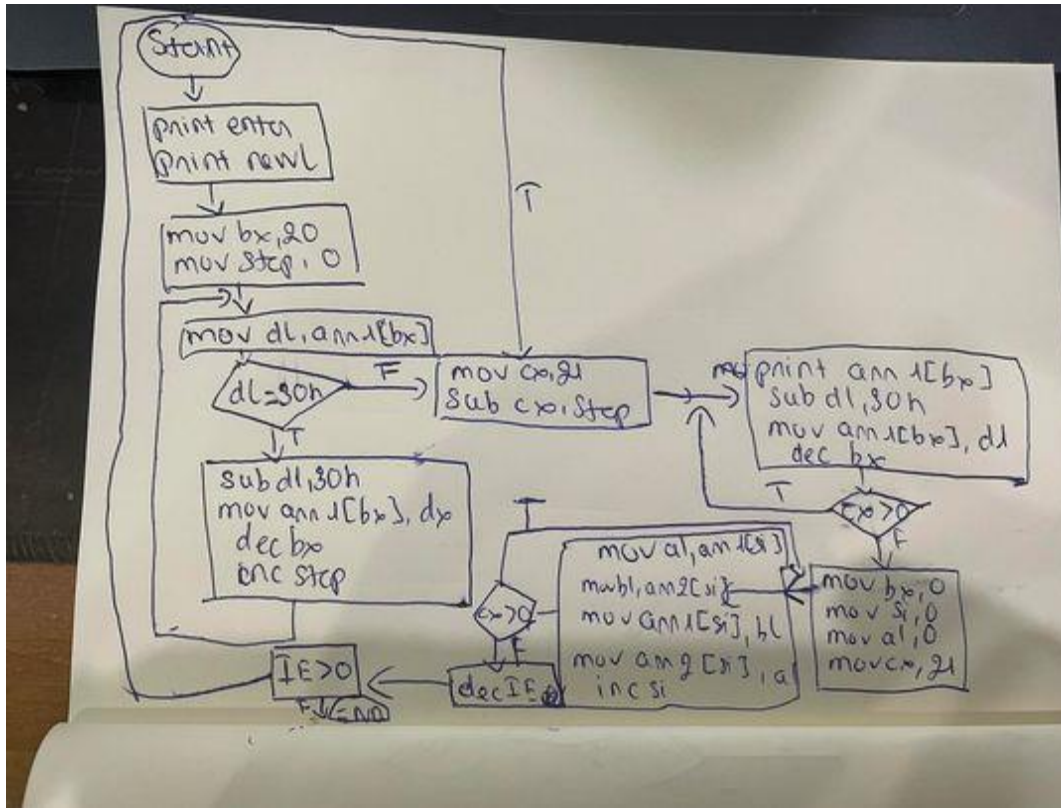 Start
print enter
print newl
mov bx,20
mov step, 0
mov dl, arr1[bx]
dl=30h
F
T
sub dl,30h
mov arr1[bx], dx
dec bx
inc step
T
mov cx,21
sub cx,step
print arr1[bx]
sub dl,30h
mov arr1[bx], dl
dec bx
cx>0
T
F
mov bx,0
mov si,0
mov al,0
mov cx,21
mov al,arr1[si]
mov bl,arr2[si]
mov arr1[si], bl
mov arr2[si], a
inc si
T
cx>0
F
dec IE
IE>0
F
END